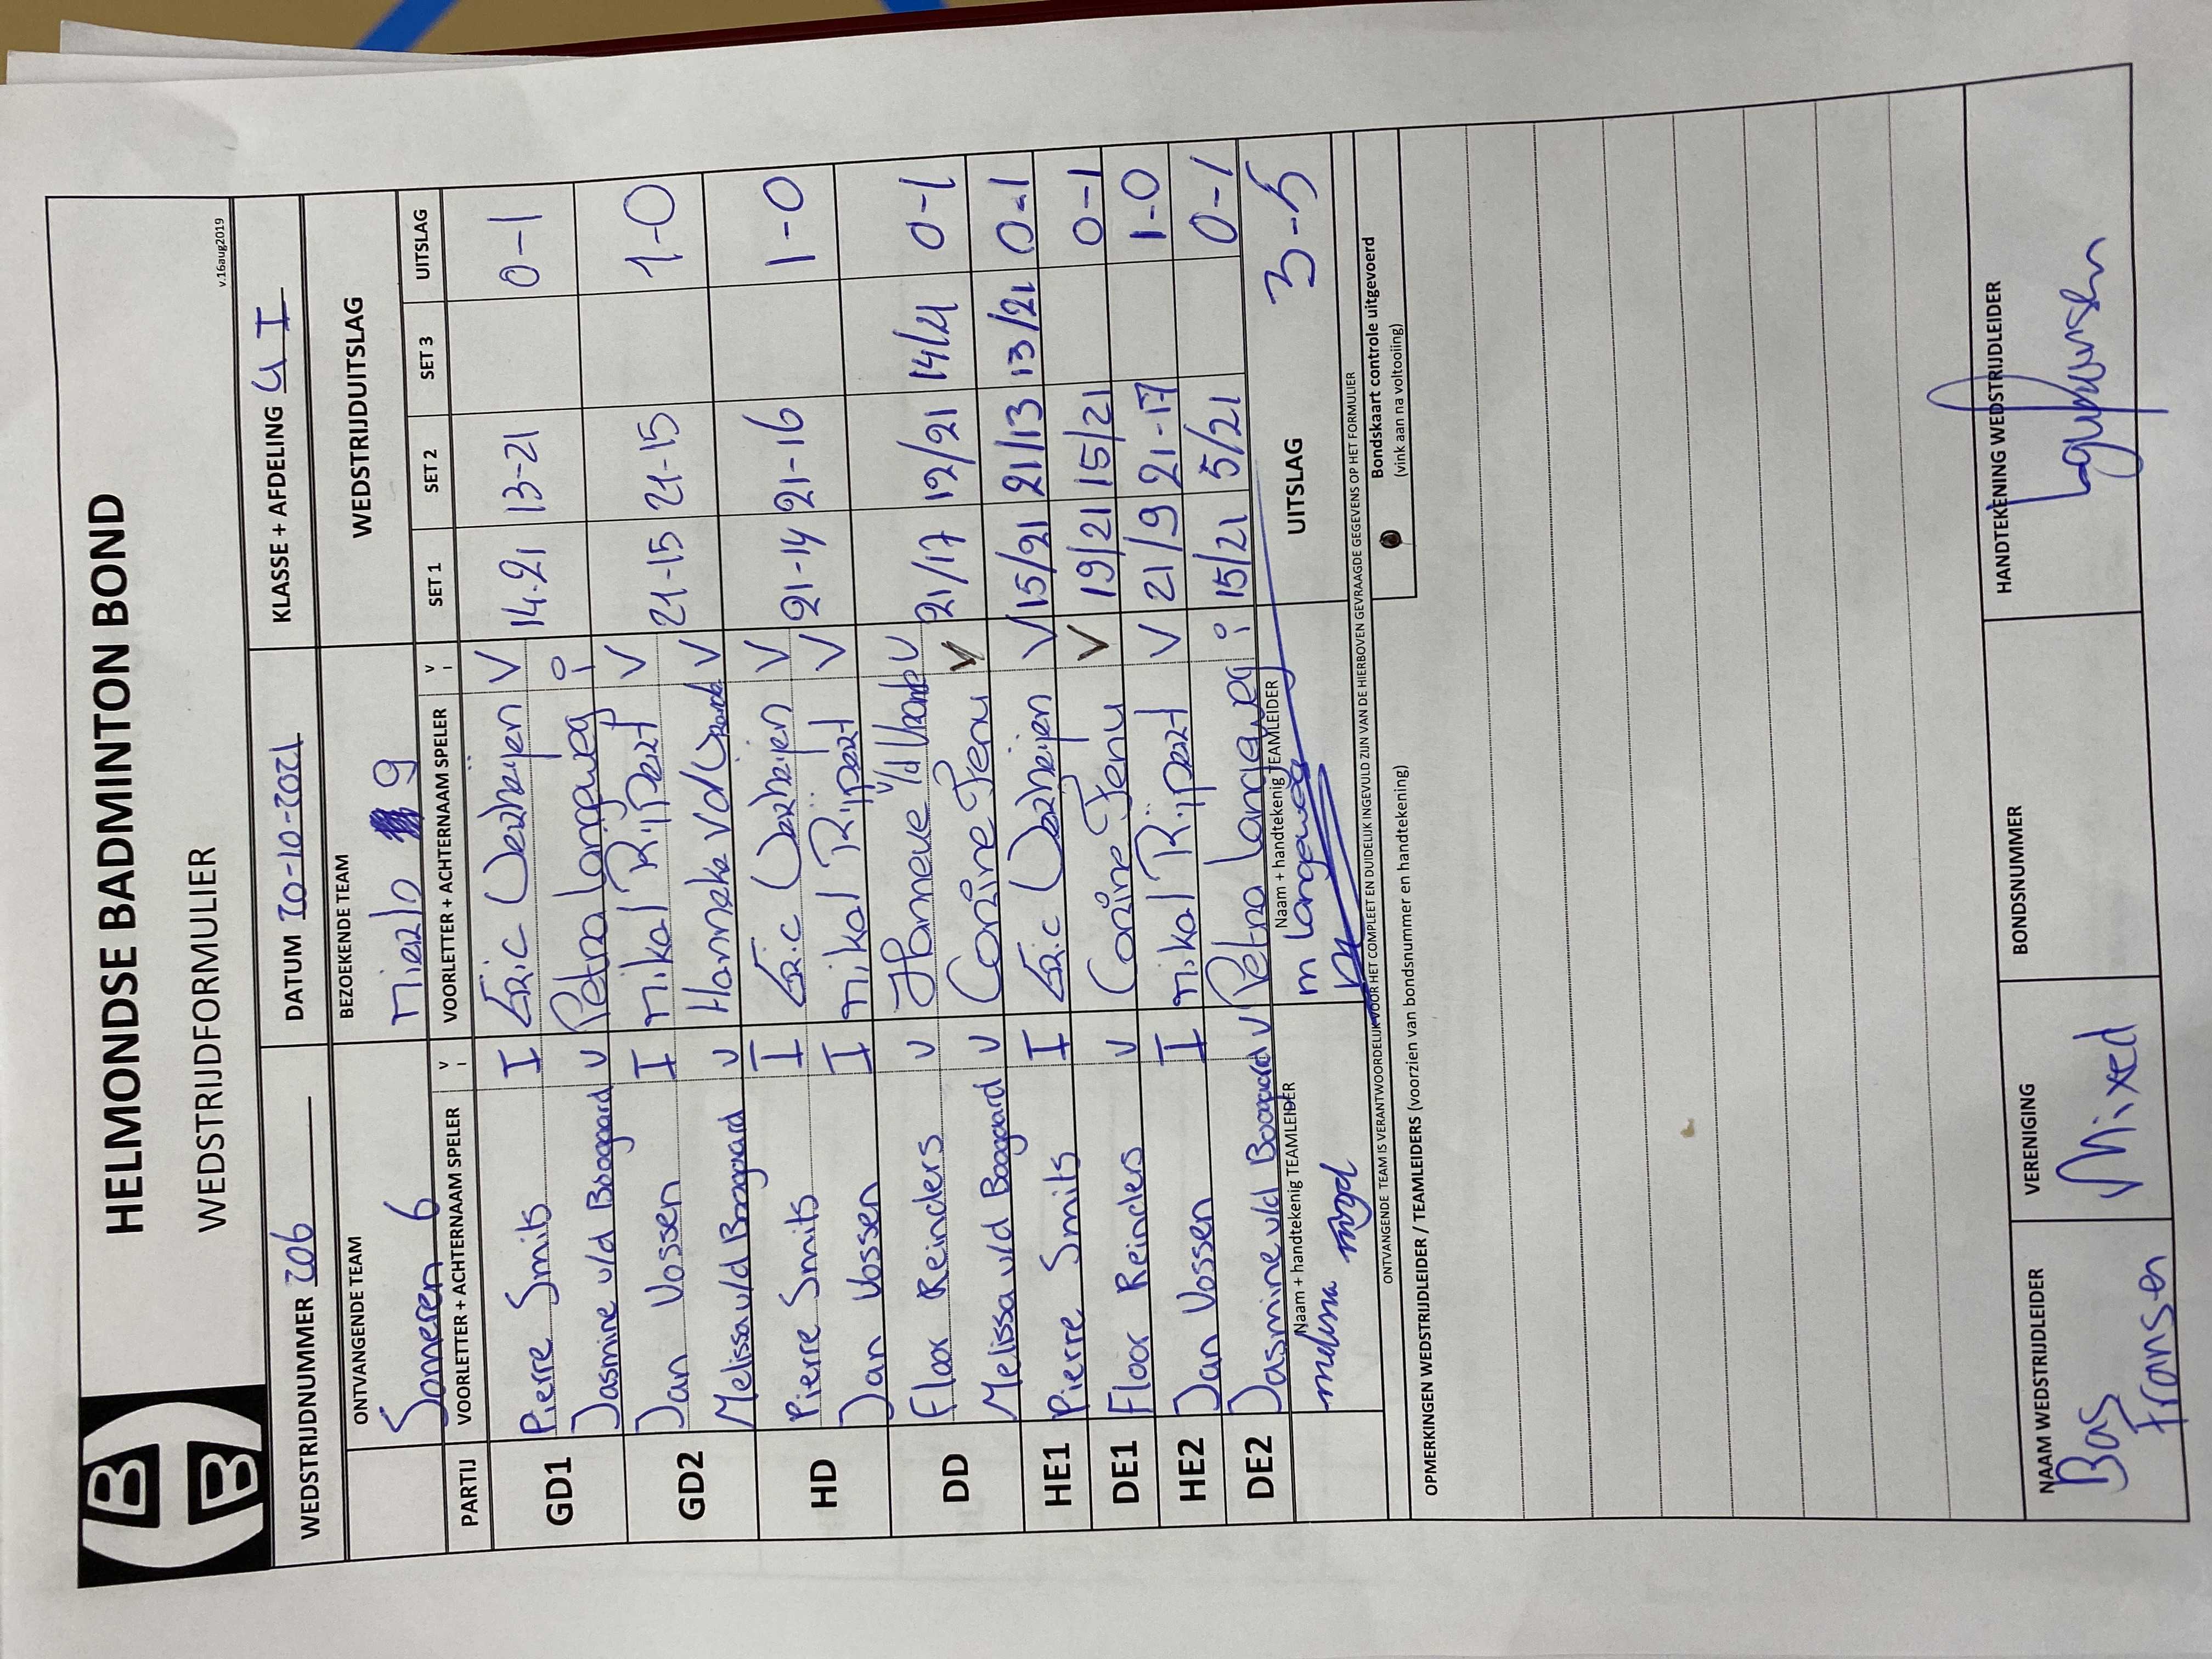 HELMONDSE BADMINTON BOND
WEDSTRIJDFORMULIER
v.16aug2019
WEDSTRIJDNUMMER 206 DATUM 20-10-2021 KLASSE + AFDELING 4 I
ONTVANGENDE TEAM BEZOEKENDE TEAM WEDSTRIJDUITSLAG
Someren 6 Mierlo 9
PARTIJ VOORLETTER + ACHTERNAAM SPELER V I VOORLETTER + ACHTERNAAM SPELER V I SET 1 SET 2 SET 3 UITSLAG
GD1 Pierre Smits I Eric Verheijen V 14-21 13-21 0-1
Jasmine v/d Boogaard V Petra Langeweg
GD2 Jan Vossen I Mikal Rijpert V 21-15 21-15 1-0
Melissa v/d Boogaard V Hanneke vd V
HD Pierre Smits I Eric Verheijen V 21-14 21-16 1-0
Jan Vossen I Mikal Rijpert V
DD Floor Reinders V Hanneke v/d V 21/17 12/21 14/21 0-1
Melissa v/d Boogaard V Corine V
HE1 Pierre Smits I Eric Verheijen V 15/21 21/13 13/21 0-1
DE1 Floor Reinders V Corine V 19/21 15/21 0-1
HE2 Jan Vossen I Mikal Rijpert V 21/9 21-17 1-0
DE2 Jasmine v/d Boogaard V Petra Langeweg 15/21 5/21 0-1
Naam + handtekenig TEAMLEIDER Naam + handtekenig TEAMLEIDER UITSLAG 3-5
melissa m Langeweg
ONTVANGENDE TEAM IS VERANTWOORDELIJK VOOR HET COMPLEET EN DUIDELIJK INGEVULD ZIJN VAN DE HIERBOVEN GEVRAAGDE GEGEVENS OP HET FORMULIER
Bondskaart controle uitgevoerd
(vink aan na voltooiing)
OPMERKINGEN WEDSTRIJDLEIDER / TEAMLEIDERS (voorzien van bondsnummer en handtekening)
NAAM WEDSTRIJDLEIDER VERENIGING BONDSNUMMER HANDTEKENING WEDSTRIJDLEIDER
Bas Mixed
Fransen